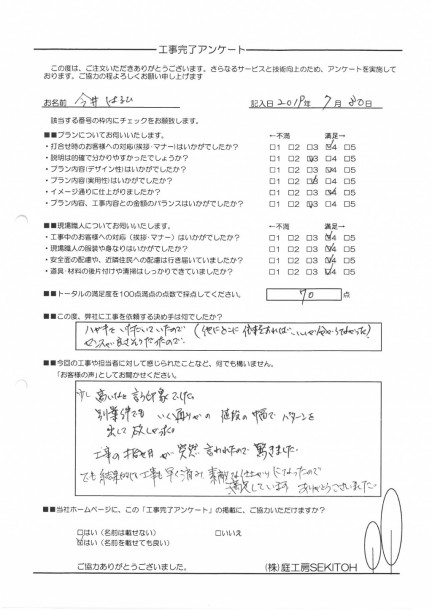 工事完了アンケート
この度は、ご注文いただきありがとうございます。さらなるサービスと技術向上のため、アンケートを実施して
おります。ご協力の程よろしくお願い申し上げます
お名前 今井 はるひ 記入日 2019年 7月 30日
該当する番号の枠内にチェックをお願致します。
■■プランについてお伺いいたします。 ←不満 満足→
・打合せ時のお客様への対応(挨拶・マナー)はいかがでしたか? □1 □2 □3 ☑4 □5
・説明は的確で分かりやすかったでしょうか? □1 □2 ☑3 □4 □5
・プラン内容(デザイン性)はいかがでしたか? □1 □2 □3 ☑4 □5
・プラン内容(実用性)はいかがでしたか? □1 □2 ☑3 □4 □5
・イメージ通りに仕上がりましたか? □1 □2 □3 ☑4 □5
・プラン内容、工事内容との金額のバランスはいかがでしたか? □1 □2 ☑3 □4 □5
■■現場職人についてお伺いいたします。 ←不満 満足→
・工事中のお客様への対応(挨拶・マナー)はいかがでしたか? □1 □2 □3 ☑4 □5
・現場職人の服装や身なりはいかがでしたか? □1 □2 □3 ☑4 □5
・安全面の配慮や、近隣住民への配慮は行き届いていましたか? □1 □2 □3 ☑4 □5
・道具・材料の後片付けや清掃はしっかりできていましたか? □1 □2 □3 ☑4 □5
■■トータルの満足度を100点満点の点数で採点してください。 70 点
■■この度、弊社に工事を依頼する決め手は何でしたか?
ハガキをいただいていたので (他にどこに依頼をすればいいか分からなかった)
センスが良さそうだったので。
■■今回の工事や担当者に対して感じられたことなど、何でも構いません。
「お客様の声」としてお聞かせください。
少し高いなと言う印象でした。
別業者でも いくつかの 値段の中間で パターンを
出して欲しかった。
工事の指定日が突然言われたので驚きました。
でも結果的に工事も早く済み、素敵な仕上がりになったので
満足しています ありがとうございました
■■当社ホームページに、この「工事完了アンケート」の掲載に、ご協力いただけますか?
□はい (名前は載せない) □いいえ
☑はい (名前を載せても良い)
ご協力ありがとうございました。 (株)庭工房SEKITOH